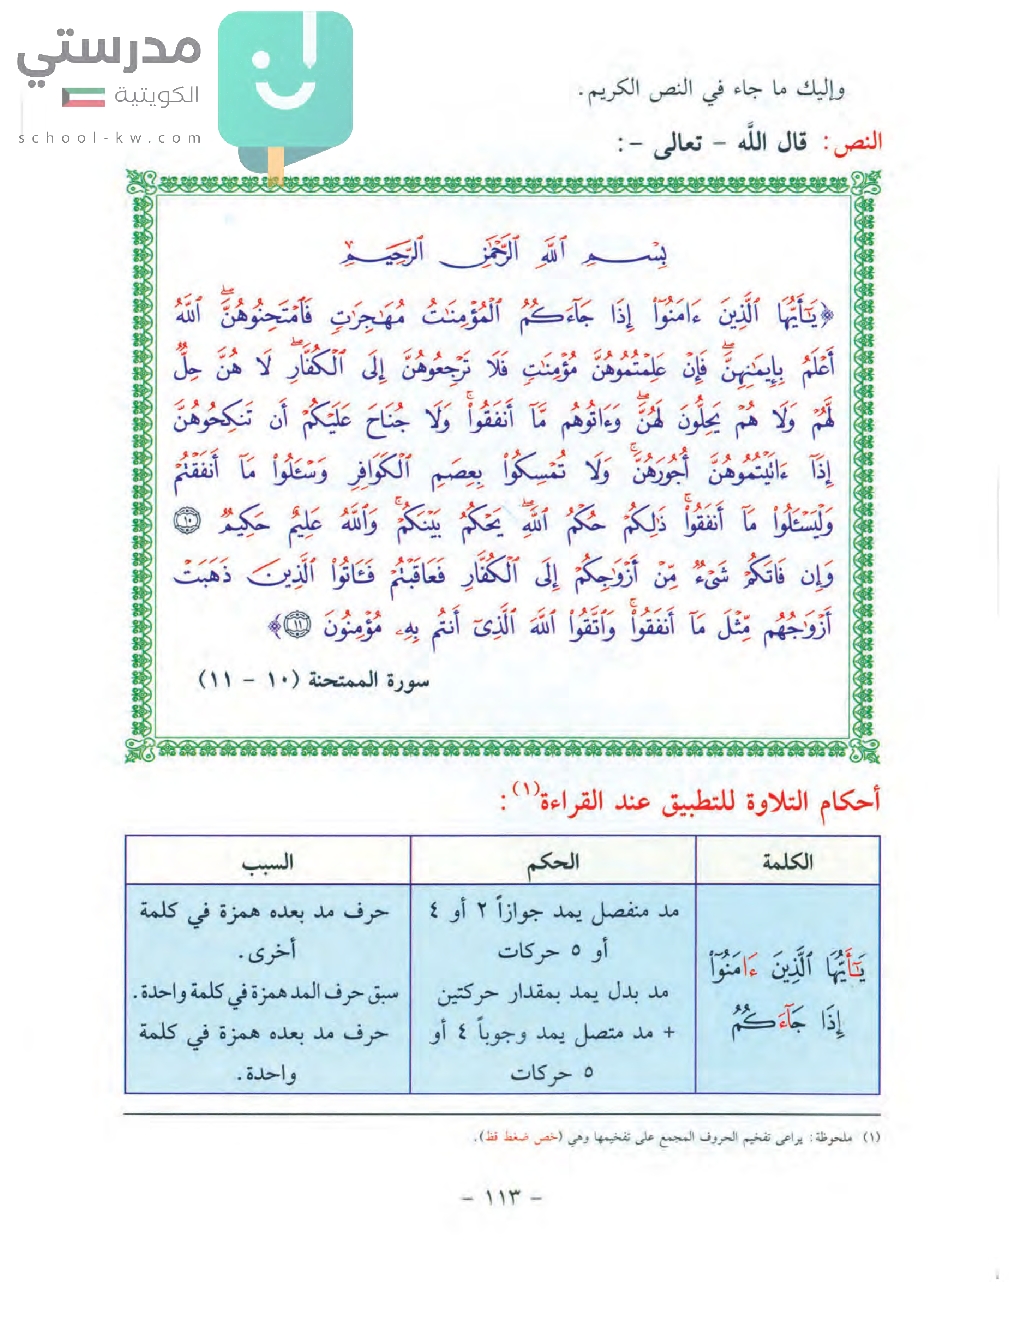 مدرستي
الكويتية
school-kw.com
وإليك ما جاء في النص الكريم.
النص: قال اللَّه - تعالى -:
بِسْمِ ٱللَّهِ ٱلرَّحْمَٰنِ ٱلرَّحِيمِ
﴿يَٰٓأَيُّهَا ٱلَّذِينَ ءَامَنُوٓا۟ إِذَا جَآءَكُمُ ٱلْمُؤْمِنَٰتُ مُهَٰجِرَٰتٍ فَٱمْتَحِنُوهُنَّ ۖ ٱللَّهُ
أَعْلَمُ بِإِيمَٰنِهِنَّ ۖ فَإِنْ عَلِمْتُمُوهُنَّ مُؤْمِنَٰتٍ فَلَا تَرْجِعُوهُنَّ إِلَى ٱلْكُفَّارِ ۖ لَا هُنَّ حِلٌّ
لَّهُمْ وَلَا هُمْ يَحِلُّونَ لَهُنَّ ۖ وَءَاتُوهُم مَّآ أَنفَقُوا۟ ۚ وَلَا جُنَاحَ عَلَيْكُمْ أَن تَنكِحُوهُنَّ
إِذَآ ءَاتَيْتُمُوهُنَّ أُجُورَهُنَّ ۚ وَلَا تُمْسِكُوا۟ بِعِصَمِ ٱلْكَوَافِرِ وَسْـَٔلُوا۟ مَآ أَنفَقْتُمْ
وَلْيَسْـَٔلُوا۟ مَآ أَنفَقُوا۟ ۚ ذَٰلِكُمْ حُكْمُ ٱللَّهِ ۖ يَحْكُمُ بَيْنَكُمْ ۚ وَٱللَّهُ عَلِيمٌ حَكِيمٌ ١٠
وَإِن فَاتَكُمْ شَىْءٌ مِّنْ أَزْوَٰجِكُمْ إِلَى ٱلْكُفَّارِ فَعَاقَبْتُمْ فَـَٔاتُوا۟ ٱلَّذِينَ ذَهَبَتْ
أَزْوَٰجُهُم مِّثْلَ مَآ أَنفَقُوا۟ ۚ وَٱتَّقُوا۟ ٱللَّهَ ٱلَّذِىٓ أَنتُم بِهِۦ مُؤْمِنُونَ ١١﴾
سورة الممتحنة (١٠ - ١١)
أحكام التلاوة للتطبيق عند القراءة(١):
الكلمة الحكم السبب
يَٰٓأَيُّهَا ٱلَّذِينَ ءَامَنُوٓا۟
إِذَا جَآءَكُمُ
مد منفصل يمد جوازاً ٢ أو ٤
أو ٥ حركات
مد بدل يمد بمقدار حركتين
+ مد متصل يمد وجوباً ٤ أو
٥ حركات
حرف مد بعده همزة في كلمة
أخرى.
سبق حرف المد همزة في كلمة واحدة.
حرف مد بعده همزة في كلمة
واحدة.
(١) ملحوظة: يراعى تفخيم الحروف المجمع على تفخيمها وهي (خص ضغط قظ).
- ١١٣ -